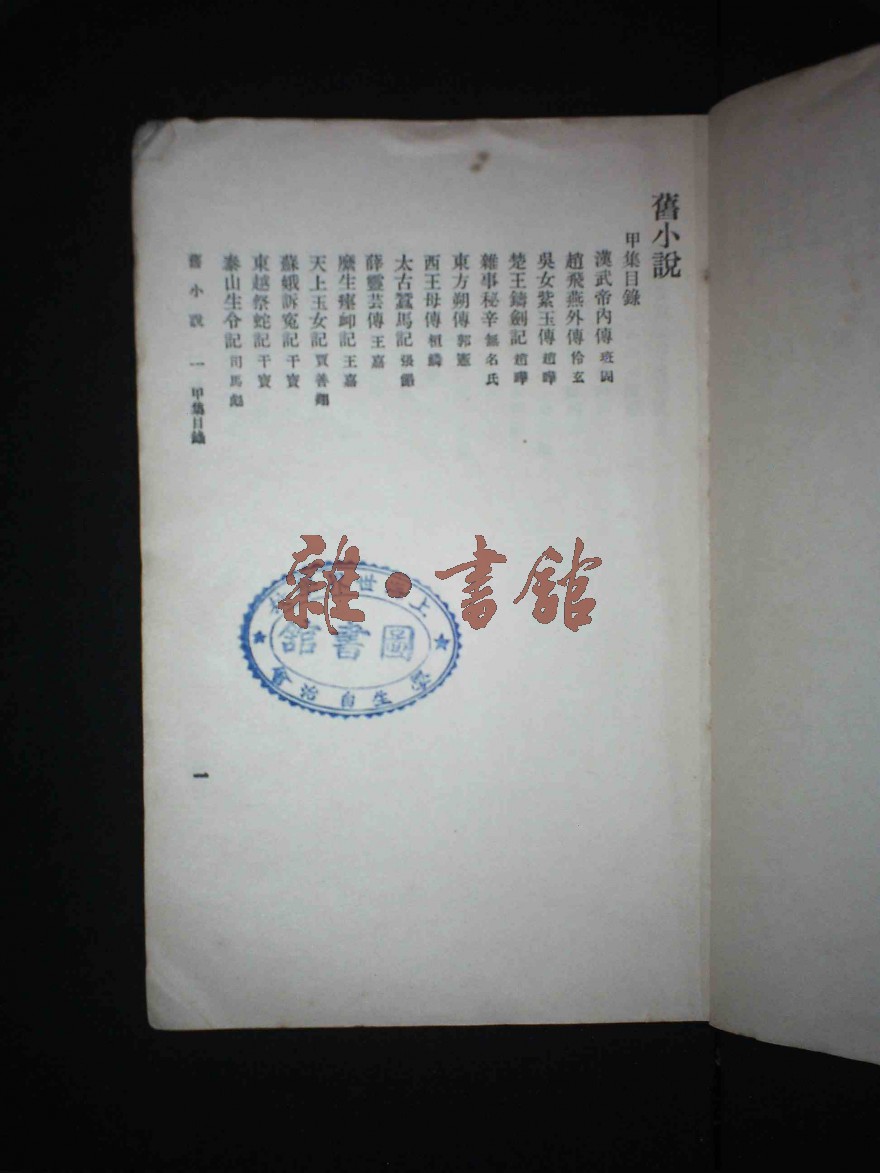 舊小說
甲集目錄
漢武帝內傳 班固
趙飛燕外傳 伶玄
吳女紫玉傳 趙曄
楚王鑄劍記 趙曄
雜事秘辛 無名氏
東方朔傳 郭憲
西王母傳 桓驎
太古蠶馬記 張儼
薛靈芸傳 王嘉
糜生瘞卹記 王嘉
天上玉女記 賈善翔
蘇娥訴冤記 干寶
東越祭蛇記 干寶
泰山生令記 司馬彪
舊小說 一 甲集目錄
一
雜·書館
圖書館
學生自治會